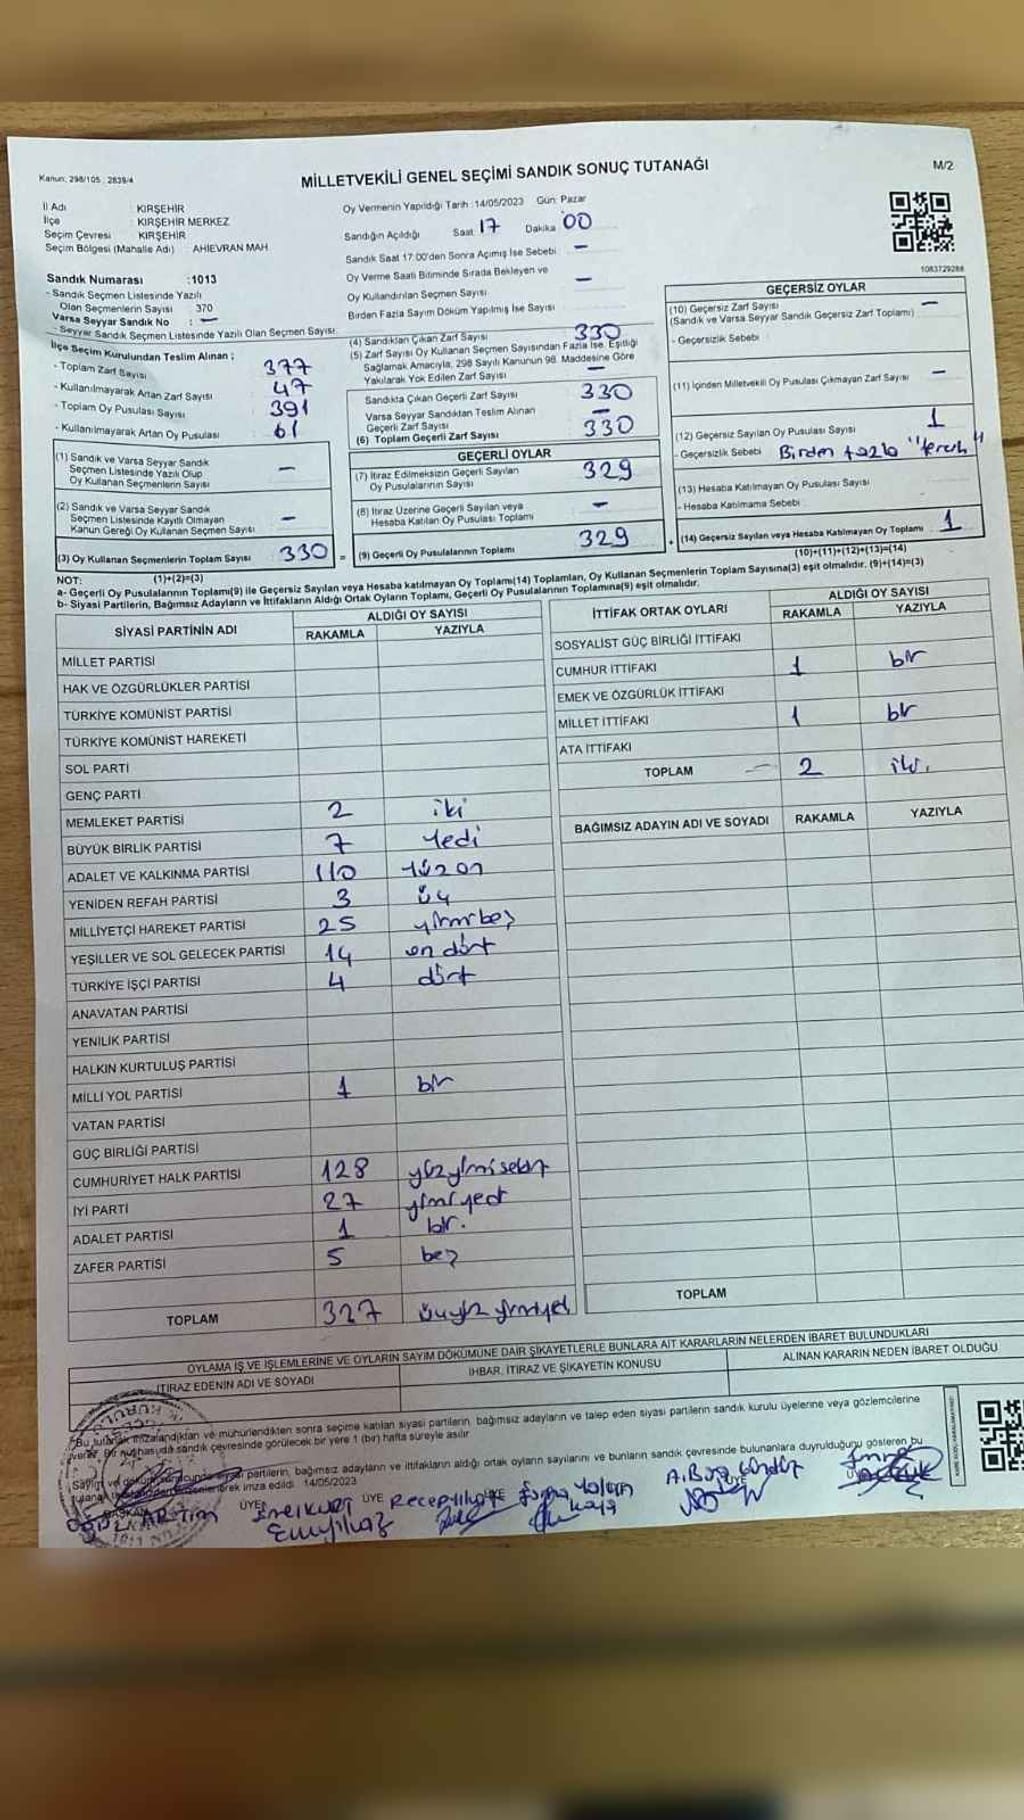 Kanun: 298/105 ; 2839/4
MİLLETVEKİLİ GENEL SEÇİMİ SANDIK SONUÇ TUTANAĞI
M/2
İl Adı : KIRŞEHİR
İlçe : KIRŞEHİR MERKEZ
Seçim Çevresi : KIRŞEHİR
Seçim Bölgesi (Mahalle Adı) : AHİEVRAN MAH.
Sandık Numarası :1013
- Sandık Seçmen Listesinde Yazılı
Olan Seçmenlerin Sayısı : 370
Varsa Seyyar Sandık No : —
- Seyyar Sandık Seçmen Listesinde Yazılı Olan Seçmen Sayısı:
Oy Vermenin Yapıldığı Tarih :14/05/2023 Gün: Pazar
Sandığın Açıldığı Saat 17 Dakika 00
Sandık Saat 17:00'den Sonra Açımış İse Sebebi —
Oy Verme Saati Bitiminde Sırada Bekleyen ve
Oy Kullandırılan Seçmen Sayısı —
Birden Fazla Sayım Döküm Yapılmış İse Sayısı
1083729288
İlçe Seçim Kurulundan Teslim Alınan ;
- Toplam Zarf Sayısı : 377
- Kullanılmayarak Artan Zarf Sayısı : 47
- Toplam Oy Pusulası Sayısı : 391
- Kullanılmayarak Artan Oy Pusulası : 61
(1) Sandık ve Varsa Seyyar Sandık
Seçmen Listesinde Yazılı Olup
Oy Kullanan Seçmenlerin Sayısı —
(2) Sandık ve Varsa Seyyar Sandık
Seçmen Listesinde Kayıtlı Olmayan
Kanun Gereği Oy Kullanan Seçmen Sayısı —
(3) Oy Kullanan Seçmenlerin Toplam Sayısı 330
(4) Sandıktan Çıkan Zarf Sayısı 330
(5) Zarf Sayısı Oy Kullanan Seçmen Sayısından Fazla İse, Eşitliği
Sağlamak Amacıyla, 298 Sayılı Kanunun 98. Maddesine Göre
Yakılarak Yok Edilen Zarf Sayısı —
Sandıkta Çıkan Geçerli Zarf Sayısı 330
Varsa Seyyar Sandıktan Teslim Alınan
Geçerli Zarf Sayısı —
(6) Toplam Geçerli Zarf Sayısı 330
GEÇERLİ OYLAR
(7) İtiraz Edilmeksizin Geçerli Sayılan
Oy Pusulalarının Sayısı 329
(8) İtiraz Üzerine Geçerli Sayılan veya
Hesaba Katılan Oy Pusulası Toplamı —
= (9) Geçerli Oy Pusulalarının Toplamı 329
GEÇERSİZ OYLAR
(10) Geçersiz Zarf Sayısı —
(Sandık ve Varsa Seyyar Sandık Geçersiz Zarf Toplamı)
- Geçersizlik Sebebi :
(11) İçinden Milletvekili Oy Pusulası Çıkmayan Zarf Sayısı —
(12) Geçersiz Sayılan Oy Pusulası Sayısı 1
- Geçersizlik Sebebi : Birden fazla "tercih"
(13) Hesaba Katılmayan Oy Pusulası Sayısı
- Hesaba Katılmama Sebebi :
+ (14) Geçersiz Sayılan veya Hesaba Katılmayan Oy Toplamı 1
NOT: (1)+(2)=(3) (10)+(11)+(12)+(13)=(14)
a- Geçerli Oy Pusulalarının Toplamı(9) ile Geçersiz Sayılan veya Hesaba katılmayan Oy Toplamı(14) Toplamları, Oy Kullanan Seçmenlerin Toplam Sayısına(3) eşit olmalıdır. (9)+(14)=(3)
b- Siyasi Partilerin, Bağımsız Adayların ve İttifakların Aldığı Ortak Oyların Toplamı, Geçerli Oy Pusulalarının Toplamına(9) eşit olmalıdır.
SİYASİ PARTİNİN ADI ALDIĞI OY SAYISI
RAKAMLA YAZIYLA
MİLLET PARTİSİ
HAK VE ÖZGÜRLÜKLER PARTİSİ
TÜRKİYE KOMÜNİST PARTİSİ
TÜRKİYE KOMÜNİST HAREKETİ
SOL PARTİ
GENÇ PARTİ
MEMLEKET PARTİSİ 2 iki
BÜYÜK BİRLİK PARTİSİ 7 Yedi
ADALET VE KALKINMA PARTİSİ 110 Yüz on
YENİDEN REFAH PARTİSİ 3 üç
MİLLİYETÇİ HAREKET PARTİSİ 25 yirmibeş
YEŞİLLER VE SOL GELECEK PARTİSİ 14 on dört
TÜRKİYE İŞÇİ PARTİSİ 4 dört
ANAVATAN PARTİSİ
YENİLİK PARTİSİ
HALKIN KURTULUŞ PARTİSİ
MİLLİ YOL PARTİSİ 1 bir
VATAN PARTİSİ
GÜÇ BİRLİĞİ PARTİSİ
CUMHURİYET HALK PARTİSİ 128 yüzyirmisekiz
İYİ PARTİ 27 yirmiyedi
ADALET PARTİSİ 1 bir.
ZAFER PARTİSİ 5 beş
TOPLAM 327 üçyüz yirmiyedi
İTTİFAK ORTAK OYLARI ALDIĞI OY SAYISI
RAKAMLA YAZIYLA
SOSYALİST GÜÇ BİRLİĞİ İTTİFAKI
CUMHUR İTTİFAKI 1 bir
EMEK VE ÖZGÜRLÜK İTTİFAKI
MİLLET İTTİFAKI 1 bir
ATA İTTİFAKI
TOPLAM 2 iki.
BAĞIMSIZ ADAYIN ADI VE SOYADI RAKAMLA YAZIYLA
TOPLAM
OYLAMA İŞ VE İŞLEMLERİNE VE OYLARIN SAYIM DÖKÜMÜNE DAİR ŞİKAYETLERLE BUNLARA AİT KARARLARIN NELERDEN İBARET BULUNDUKLARI
İTİRAZ EDENİN ADI VE SOYADI İHBAR, İTİRAZ VE ŞİKAYETİN KONUSU ALINAN KARARIN NEDEN İBARET OLDUĞU
Bu tutanak imzalandıktan ve mühürlendikten sonra seçime katılan siyasi partilerin, bağımsız adayların ve talep eden siyasi partilerin sandık kurulu üyelerine veya gözlemcilerine
verilir. Bir nüshası da sandık çevresinde görülecek bir yere 1 (bir) hafta süreyle asılır.
Sayım ve döküm sonucunda siyasi partilerin, bağımsız adayların ve ittifakların aldığı ortak oyların sayılarını ve bunların sandık çevresinde bulunanlara duyrulduğunu gösteren bu
tutanak tarafımızdan düzenlenerek imza edildi. 14/05/2023
BAŞKAN ÜYE ÜYE ÜYE ÜYE